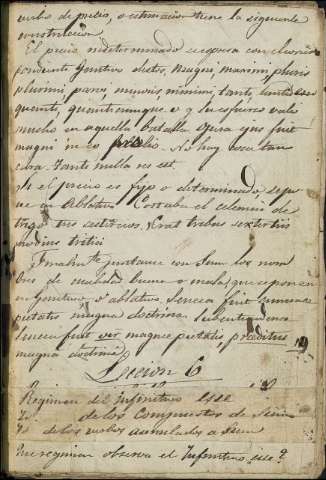 verbo de precio, o estimacion tiene la siguiente
construccion
El precio indeterminado se espresa con el
pondiente Genitivo de estos, magni, maximi pluris
plurimi parvi, minoris minimi, tanti
quanti, y
mucho en aquella batalla Opera ejus fuit
magni in eo prelio. No hay cosa tan
cara. Tanti nulla res est.
Si el precio es fijo o determinado, se po
ne en Ablativo. Costaba el celemin de
trigo tres sestercios. Erat tribus sextertiis
modius tritici
Finalmte se juntan con Sum los nom
bres de cualidad buena o mala, que se ponen
en Genitivo o ablativo. Seneca fuit summae
pietatis magna doctrina.
Seneca fuit vir magnae pietatis, praeditus
magna doctrina)
Leccion 6
Regimen del infinitivo Esse
Yd. de los Compuestos de Sum
Yd. de los verbos asimilados a Sum
Que regimen observa el Infinitivo, esse?